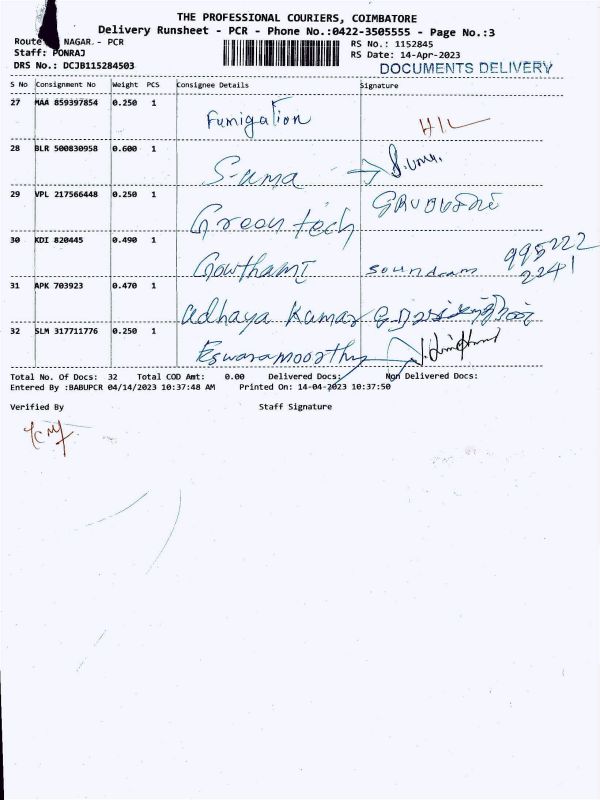 THE PROFESSIONAL COURIERS, COIMBATORE
Delivery Runsheet - PCR - Phone No.:0422-3505555 - Page No.:3
Route NAGAR - PCR
RS No.: 1152845
Staff: PONRAJ
RS Date: 14-Apr-2023
DRS No.: DCJB115284503
DOCUMENTS DELIVERY
S No Consignment No Weight PCS Consignee Details Signature
27 MAA 859397854 0.250 1 Fumigation
28 BLR 500830958 0.600 1 S-uma S.uma.
29 VPL 217566448 0.250 1 Green tech
30 KDI 820445 0.490 1 Gowthami soundram 995222
2241
31 APK 703923 0.470 1 adhaya Kumar
32 SLM 317711776 0.250 1 Eswaramoorthy
Total No. Of Docs: 32 Total COD Amt: 0.00 Delivered Docs: Non Delivered Docs:
Entered By :BABUPCR 04/14/2023 10:37:48 AM Printed On: 14-04-2023 10:37:50
Verified By Staff Signature